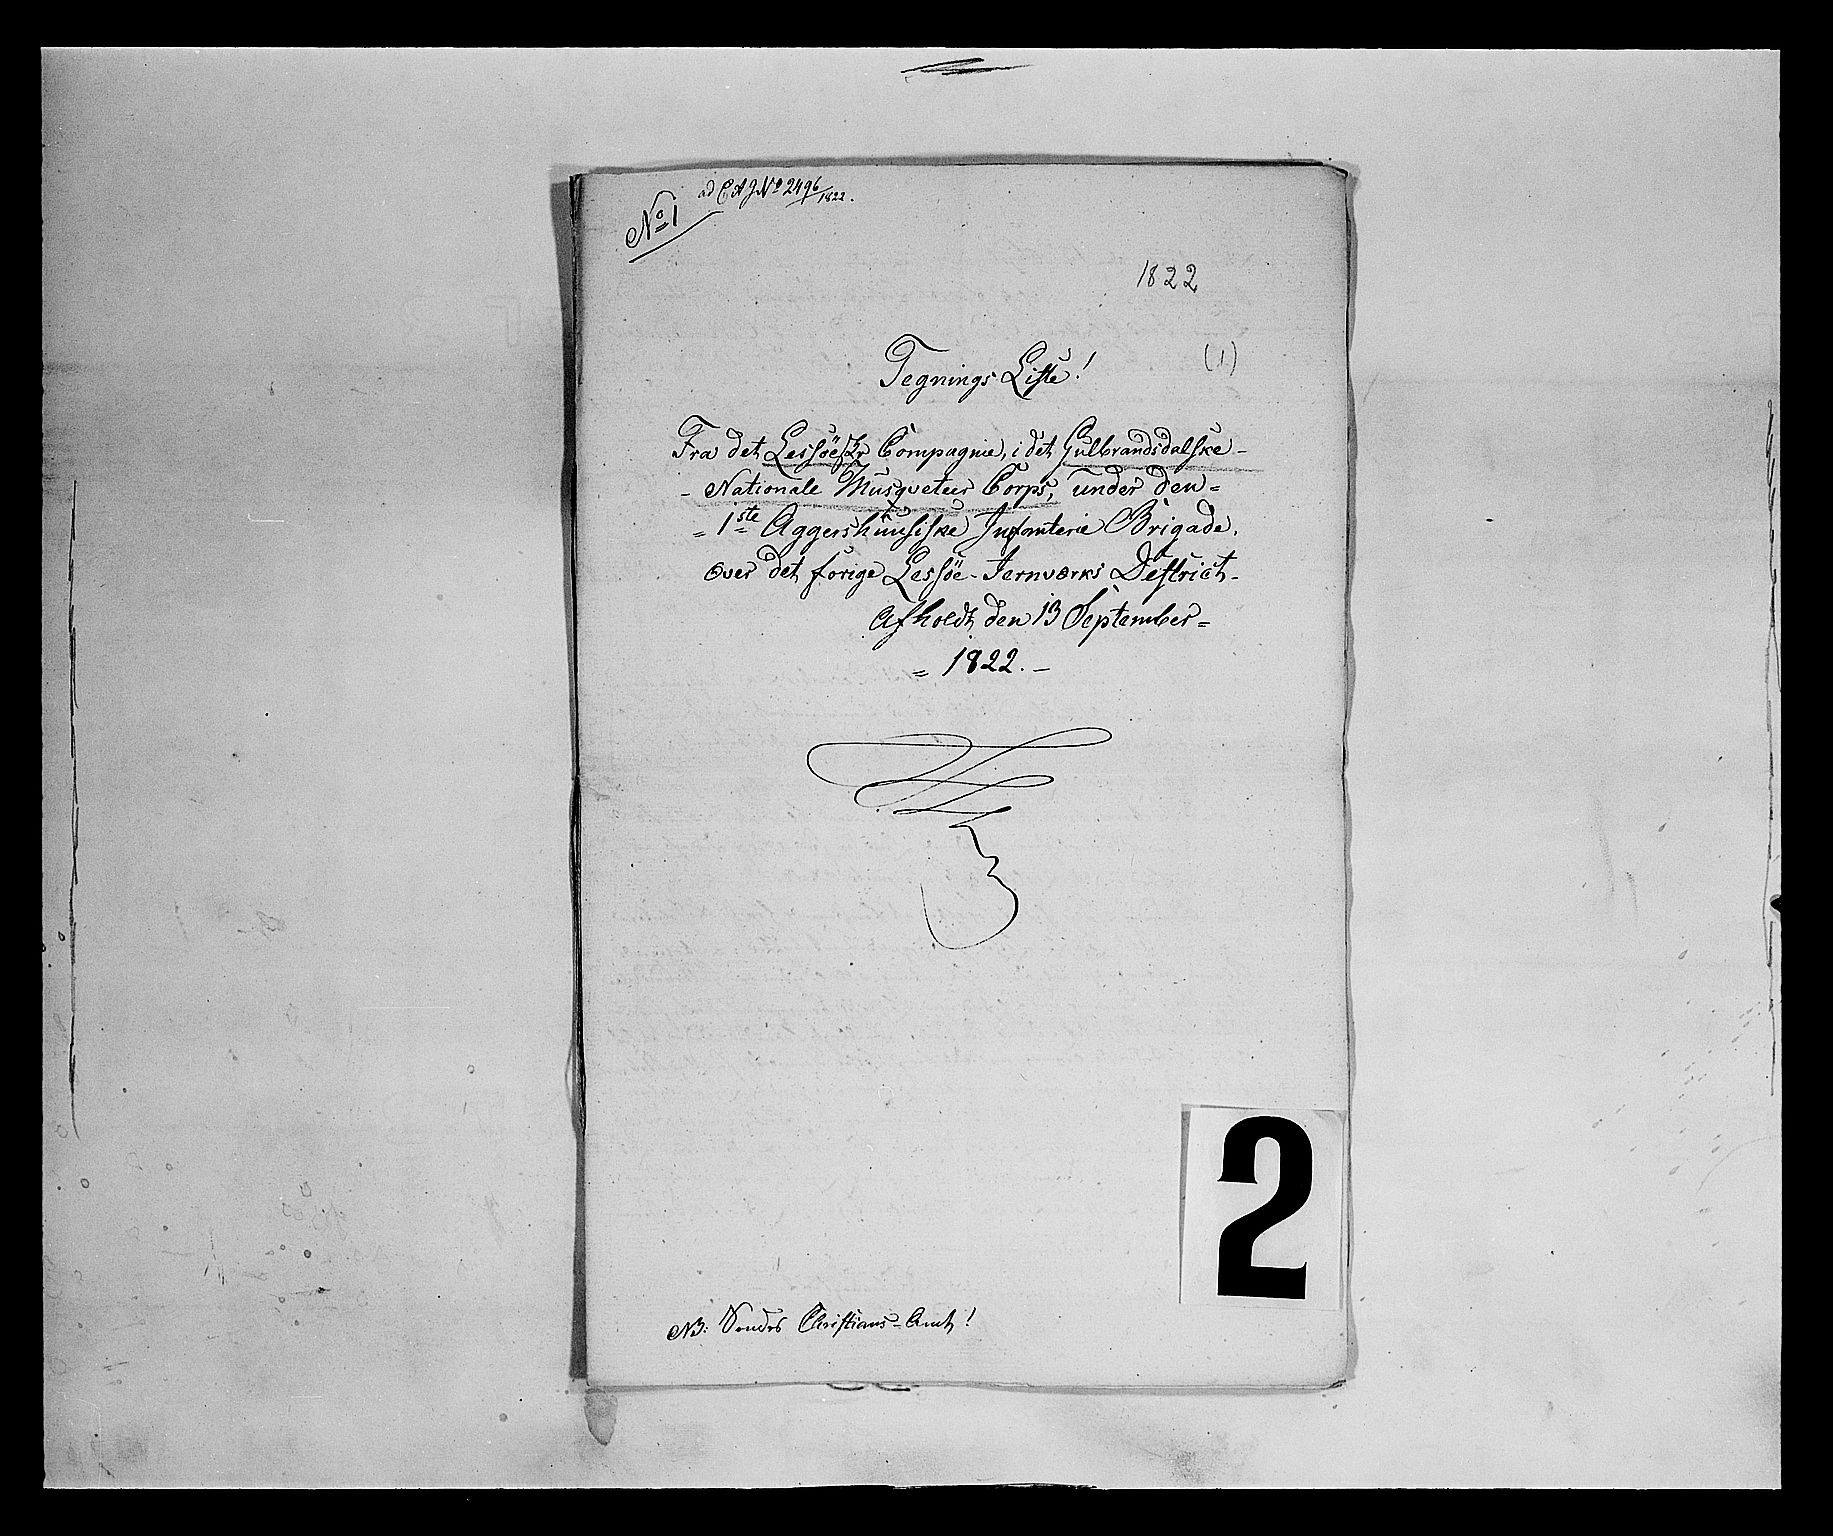 ad C A J No 2496/1822.
No 1
1822
(1)
Tegnings Liste!
Fra det Lessöeske Compagnie, i det Gulbrandsdalske-
- Nationale Musqveteer Corps, under den=
= 1ste Aggershuusiske Infanterie Brigade.
over det forige Lessöe-Jernværks Destrict-
Afholdt den 13 September=
= 1822. -
2
NB: Christians-Amt!